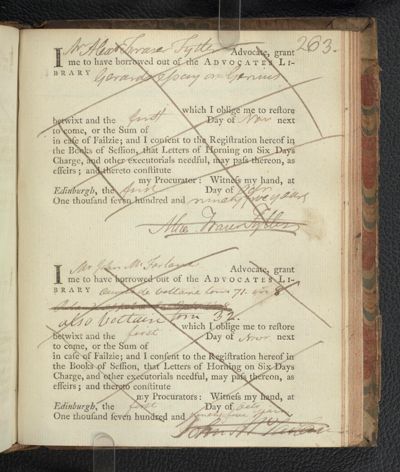 263.
I Mr Alexr Fraser Tytler Advocate, grant
me to have borrowed out of the ADVOCATES LI-
BRARY Gerards essay on Genius
which I oblige me to reſtore
betwixt and the first Day of Nov next
to come, or the Sum of
in caſe of Failzie; and I conſent to the Regiſtration hereof in
the Books of Seſſion, that Letters of Horning on Six Days
Charge, and other executorials needful, may paſs thereon, as
effeirs; and thereto conſtitute
my Procurator: Witneſs my hand, at
Edinburgh, the first Day of
One thouſand ſeven hundred and ninety five years
Alexr Fraser Tytler
I Mr John McFarlane Advocate, grant
me to have borrowed out of the ADVOCATES LI-
BRARY de voltaire tom 71. in 8
also Voltaire tom 32.
which I oblige me to reſtore
betwixt and the first Day of Nov next
to come, or the Sum of
in caſe of Failzie; and I conſent to the Regiſtration hereof in
the Books of Seſſion, that Letters of Horning on Six Days
Charge, and other executorials needful, may paſs thereon, as
effeirs; and thereto conſtitute
my Procurators: Witneſs my hand, at
Edinburgh, the first Day of
One thouſand ſeven hundred and ninety five years
John McFarlane